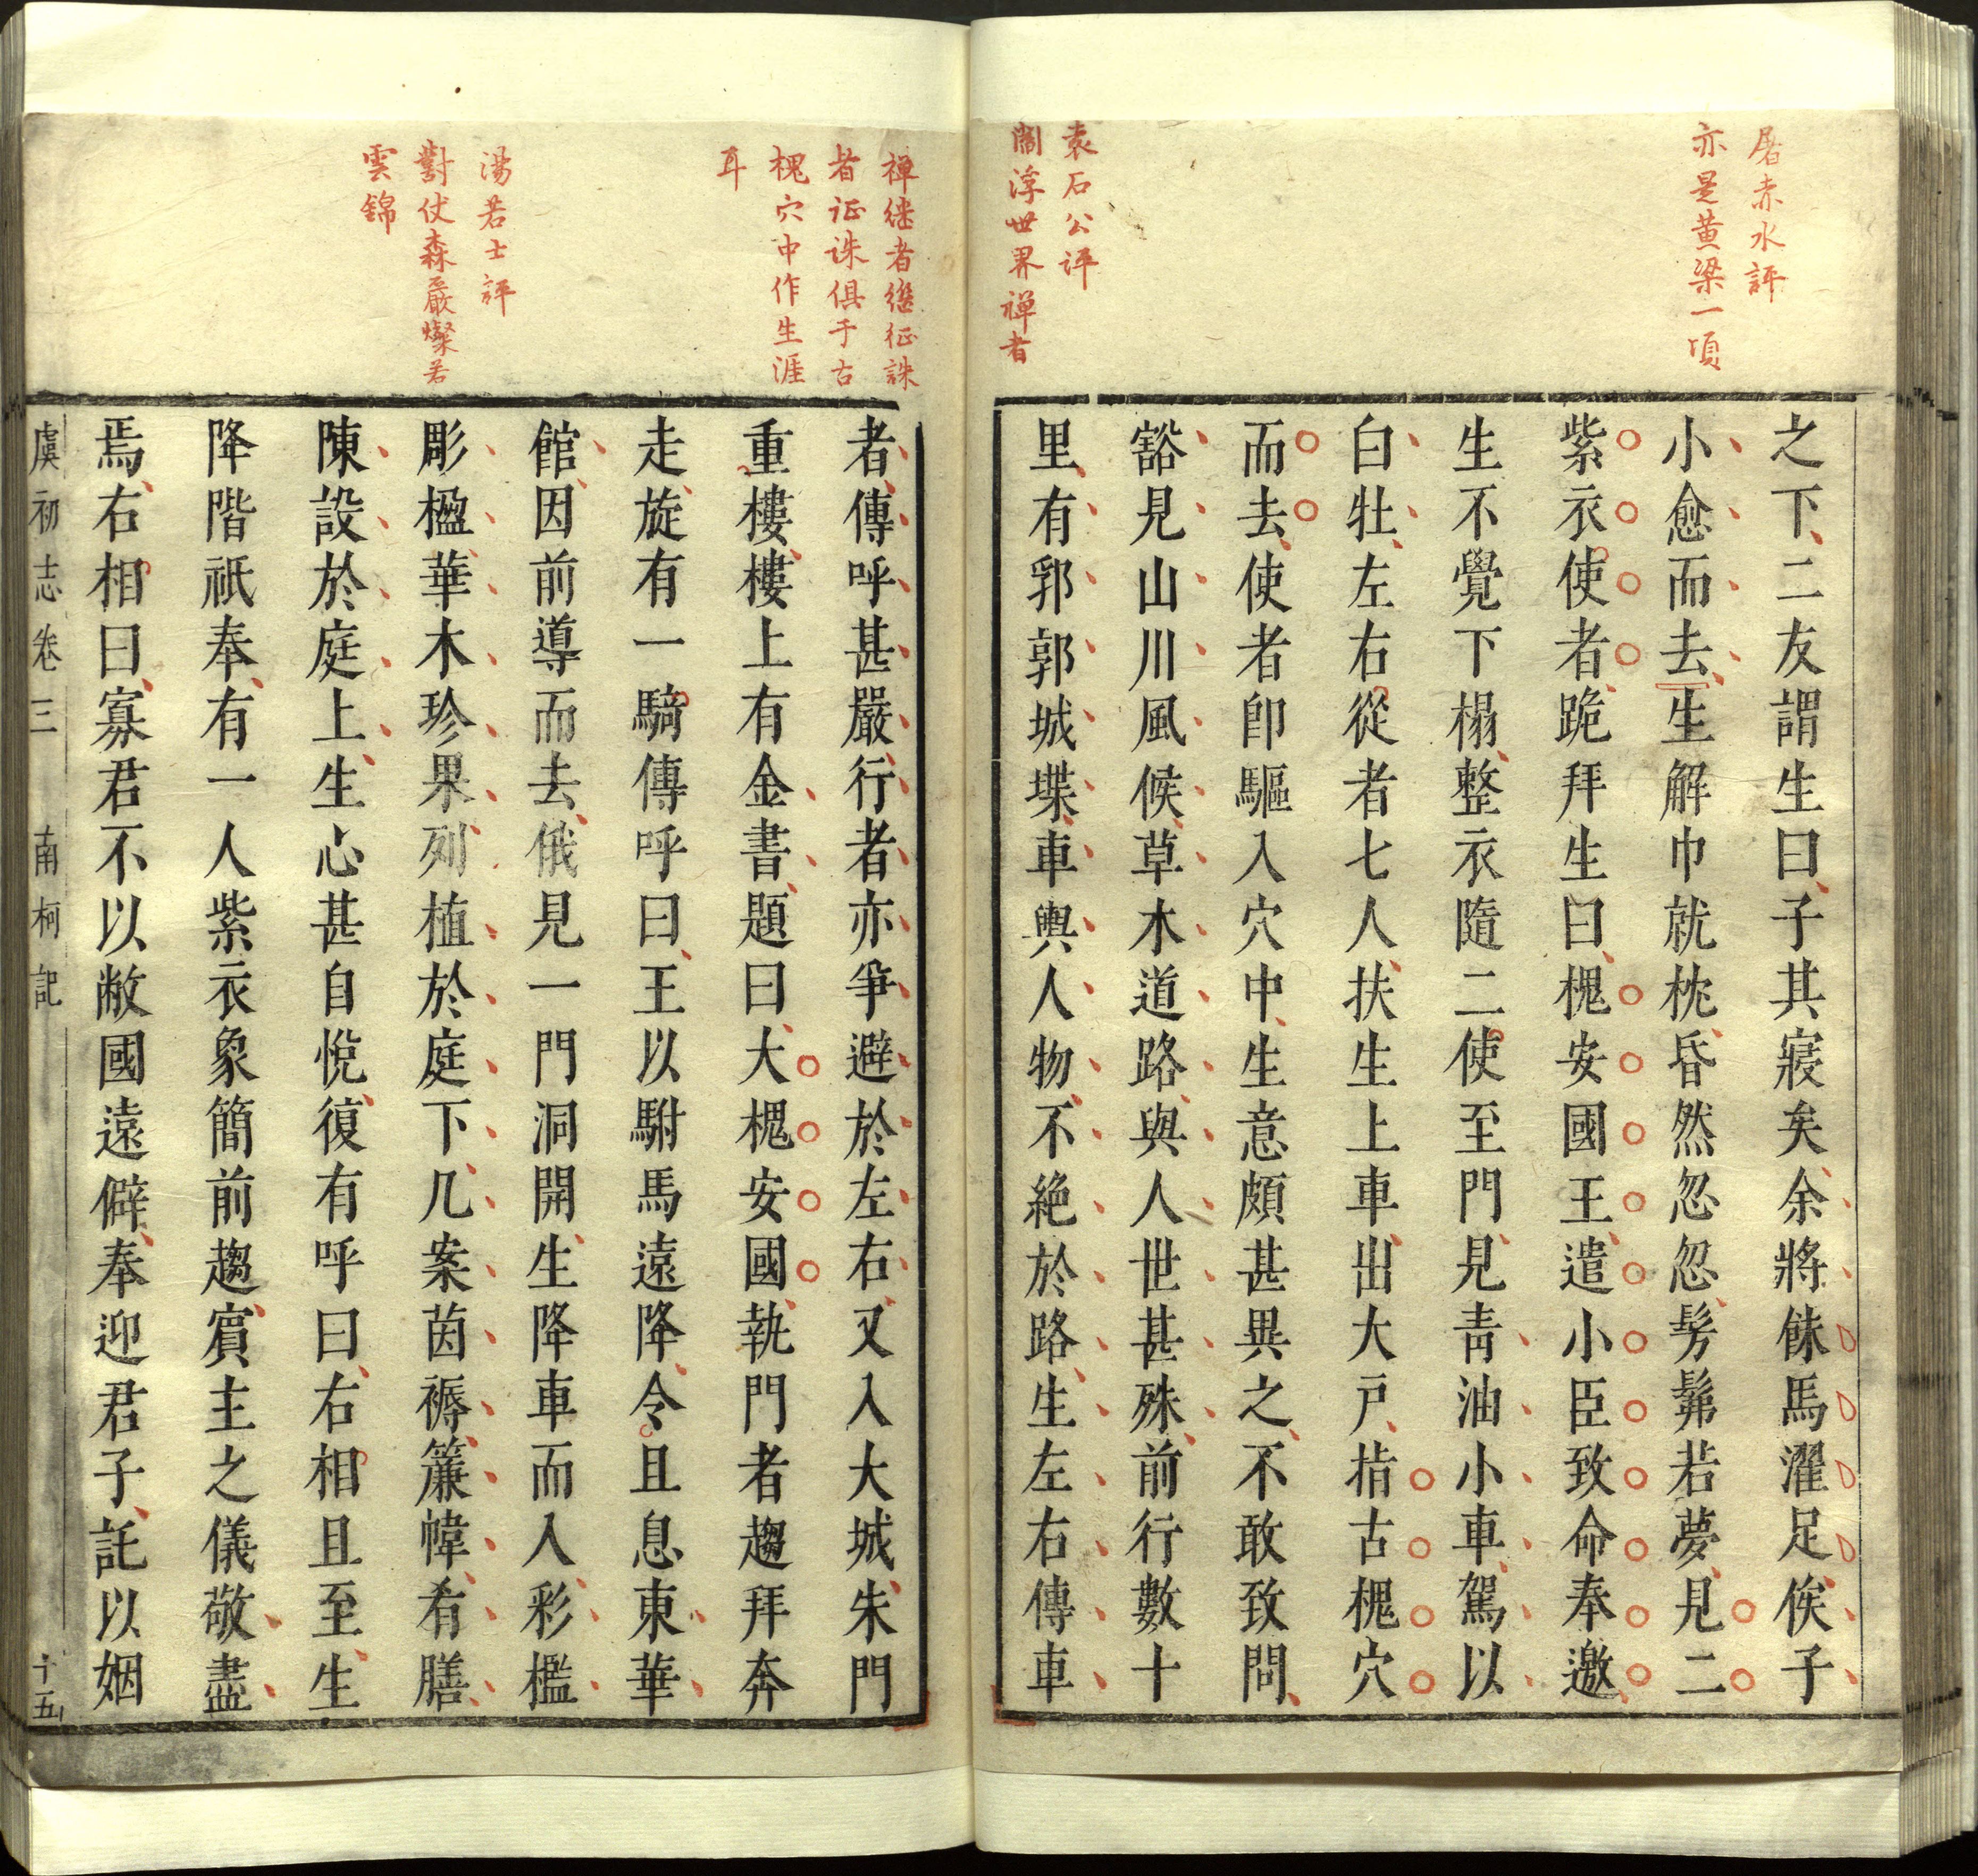 屠赤水評
亦是黄梁一項
袁石公评
閻浮世界禅者
之下二友謂生曰子其寢矣余將餗馬濯足俟子
小愈而去生解巾就枕昏然忽忽髣髴若夢見二
紫衣使者跪拜生曰槐安國王遣小臣致命奉邀
生不覺下榻整衣隨二使至門見青油小車駕以
白牡左右從者七人扶生上車出大戶指古槐穴
而去使者卽驅入穴中生意頗甚異之不敢致問
豁見山川風候草木道路與人世甚殊前行數十
里有郛郭城堞車輿人物不絕於路生左右傳車
禅継者繼征誅
者证诛俱于古
槐穴中作生涯
耳
湯若士評
對仗森嚴燦若
雲錦
者傳呼甚嚴行者亦爭避於左右又入大城朱門
重樓樓上有金書題曰大槐安國執門者趨拜奔
走旋有一騎傳呼曰王以駙馬遠降令且息東華
館因前導而去俄見一門洞開生降車而入彩檻
彫楹華木珍果列植於庭下几案茵褥簾幃肴膳
陳設於庭上生心甚自悅復有呼曰右相且至生
降階祇奉有一人紫衣象簡前趨賓主之儀敬盡
焉右相曰寡君不以敝國遠僻奉迎君子託以姻
虞初志卷三 南柯記 十五